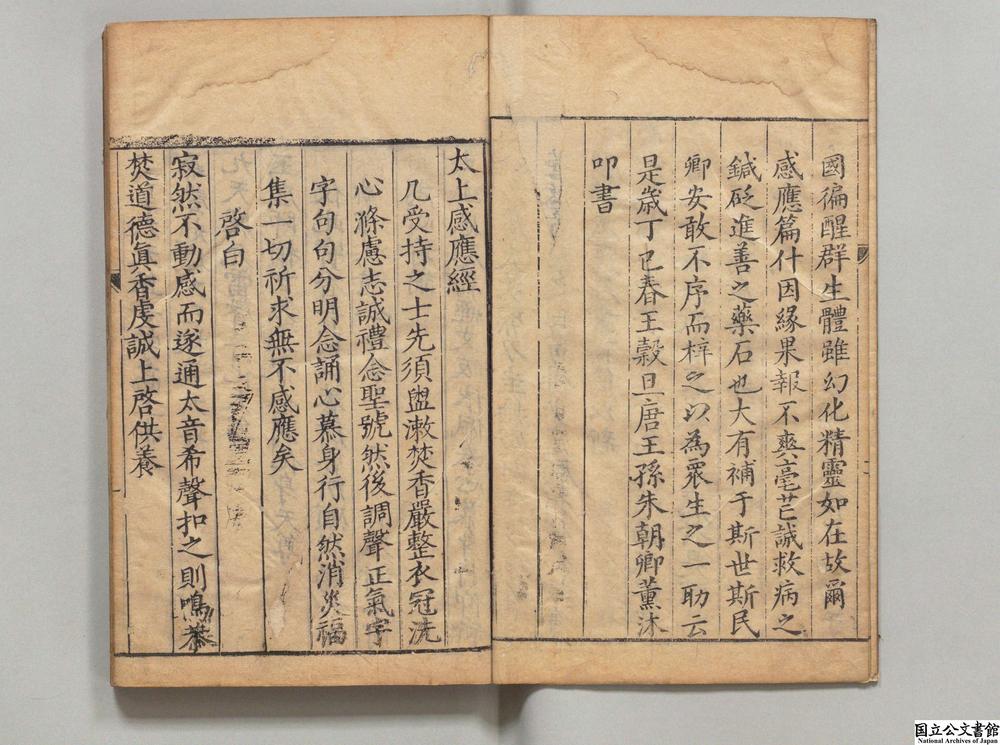 國徧醒群生體雖幻化精靈如在故爾
感應篇什因緣果報不爽毫芒誠救病之
鍼砭進善之藥石也大有補于斯世斯民
卿安敢不序而梓之以為衆生之一助云
是歲丁巳春王穀旦唐王孫朱朝卿薰沐
叩書
太上感應經
凡受持之士先須盥漱焚香嚴整衣冠洗
心滌慮志誠禮念聖號然後調聲正氣字
字句句分明念誦心慕身行自然消災福
集一切祈求無不感應矣
啓白
寂然不動感而遂通太音希聲扣之則鳴恭
焚道德真香虔誠上啓供養
国立公文書館
National Archives of Japan